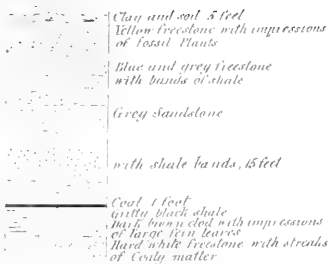 Clay and soil 5 feet
Yellow freestone with impressions
of fossil Plants
Blue and grey freestone
with bands of shale
Grey Sandstone
with shale bands, 15 feet
Coal 1 foot
Gritty black shale
Dark brown clod with impressions
of large fern leaves
Hard white freestone with streaks
of Coaly matter